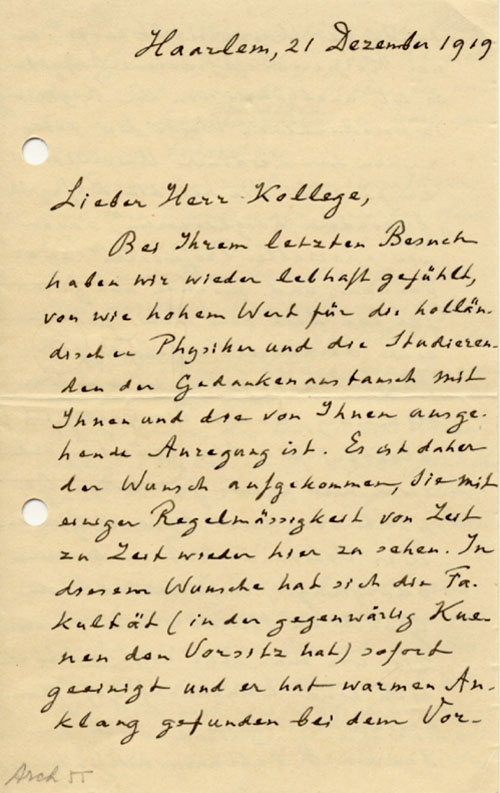 Haarlem, 21 Dezember 1919
Lieber Herr Kollege,
Bei Ihrem letzten Besuch
haben wir wieder lebhaft gefühlt,
von wie hohem Wert für die hollän-
dischen Physiker und die Studieren-
den der Gedankenaustausch mit
Ihnen und die von Ihnen ausge-
hende Anregung ist. Es ist daher
der Wunsch aufgekommen, Sie mit
einiger Regelmässigkeit von Zeit
zu Zeit wieder hier zu sehen. In
diesem Wunsche hat sich die Fa-
kultät (in der gegenwärtig Kue-
nen den Vorsitz hat) sofort
geeinigt und er hat warmen An-
klang gefunden bei dem Vor-
Arch 55